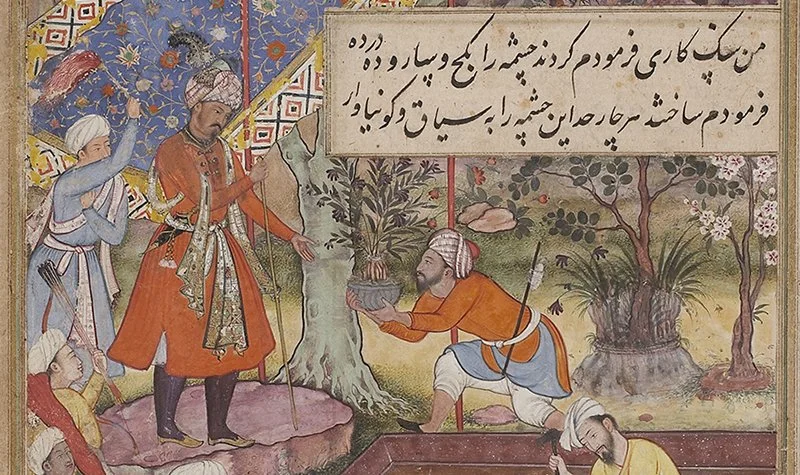 من کاری فرمودم کردند چشمه را بکج و ده درده
فرمودم ساختند هر چار حد این چشمه را به سیاق و کونیا وار